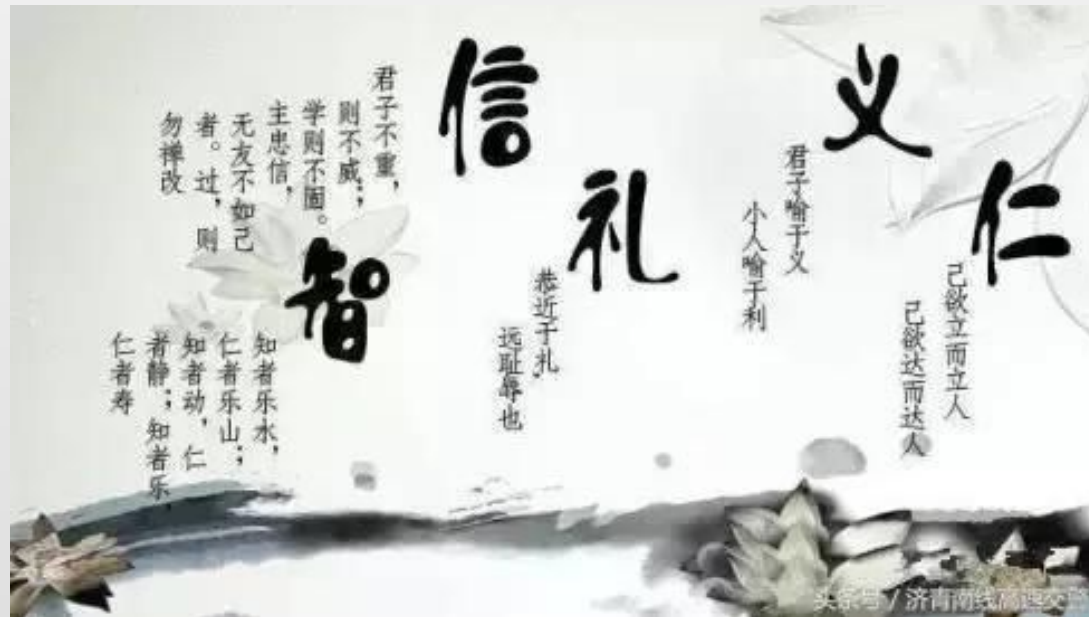 仁
己欲立而立人
己欲达而达人
义
君子喻于义
小人喻于利
礼
恭近于礼，
远耻辱也
信
君子不重，
则不威；
学则不固。
主忠信，
无友不如己
者。过，则
勿禅改
智
知者乐水，
仁者乐山；
知者动，仁
者静；知者乐，
仁者寿
头条号 / 济青南线高速交警